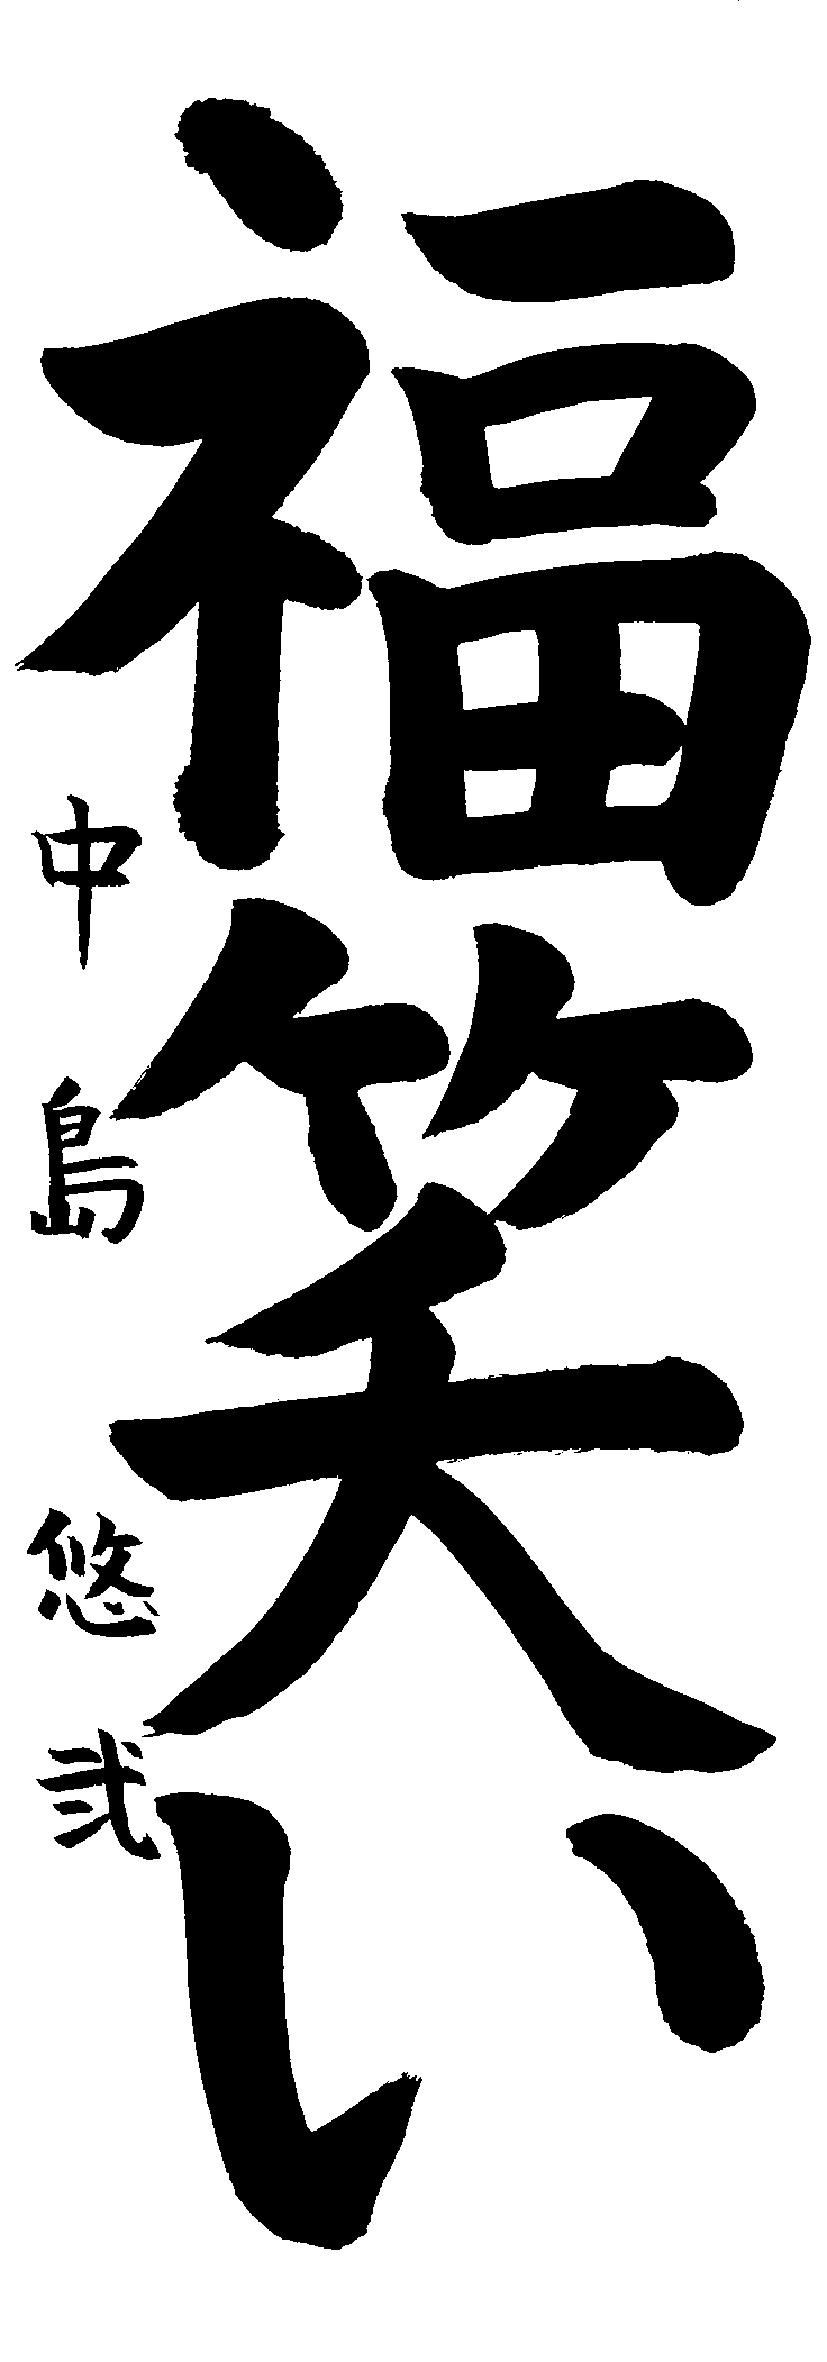 福笑い
中島悠弐